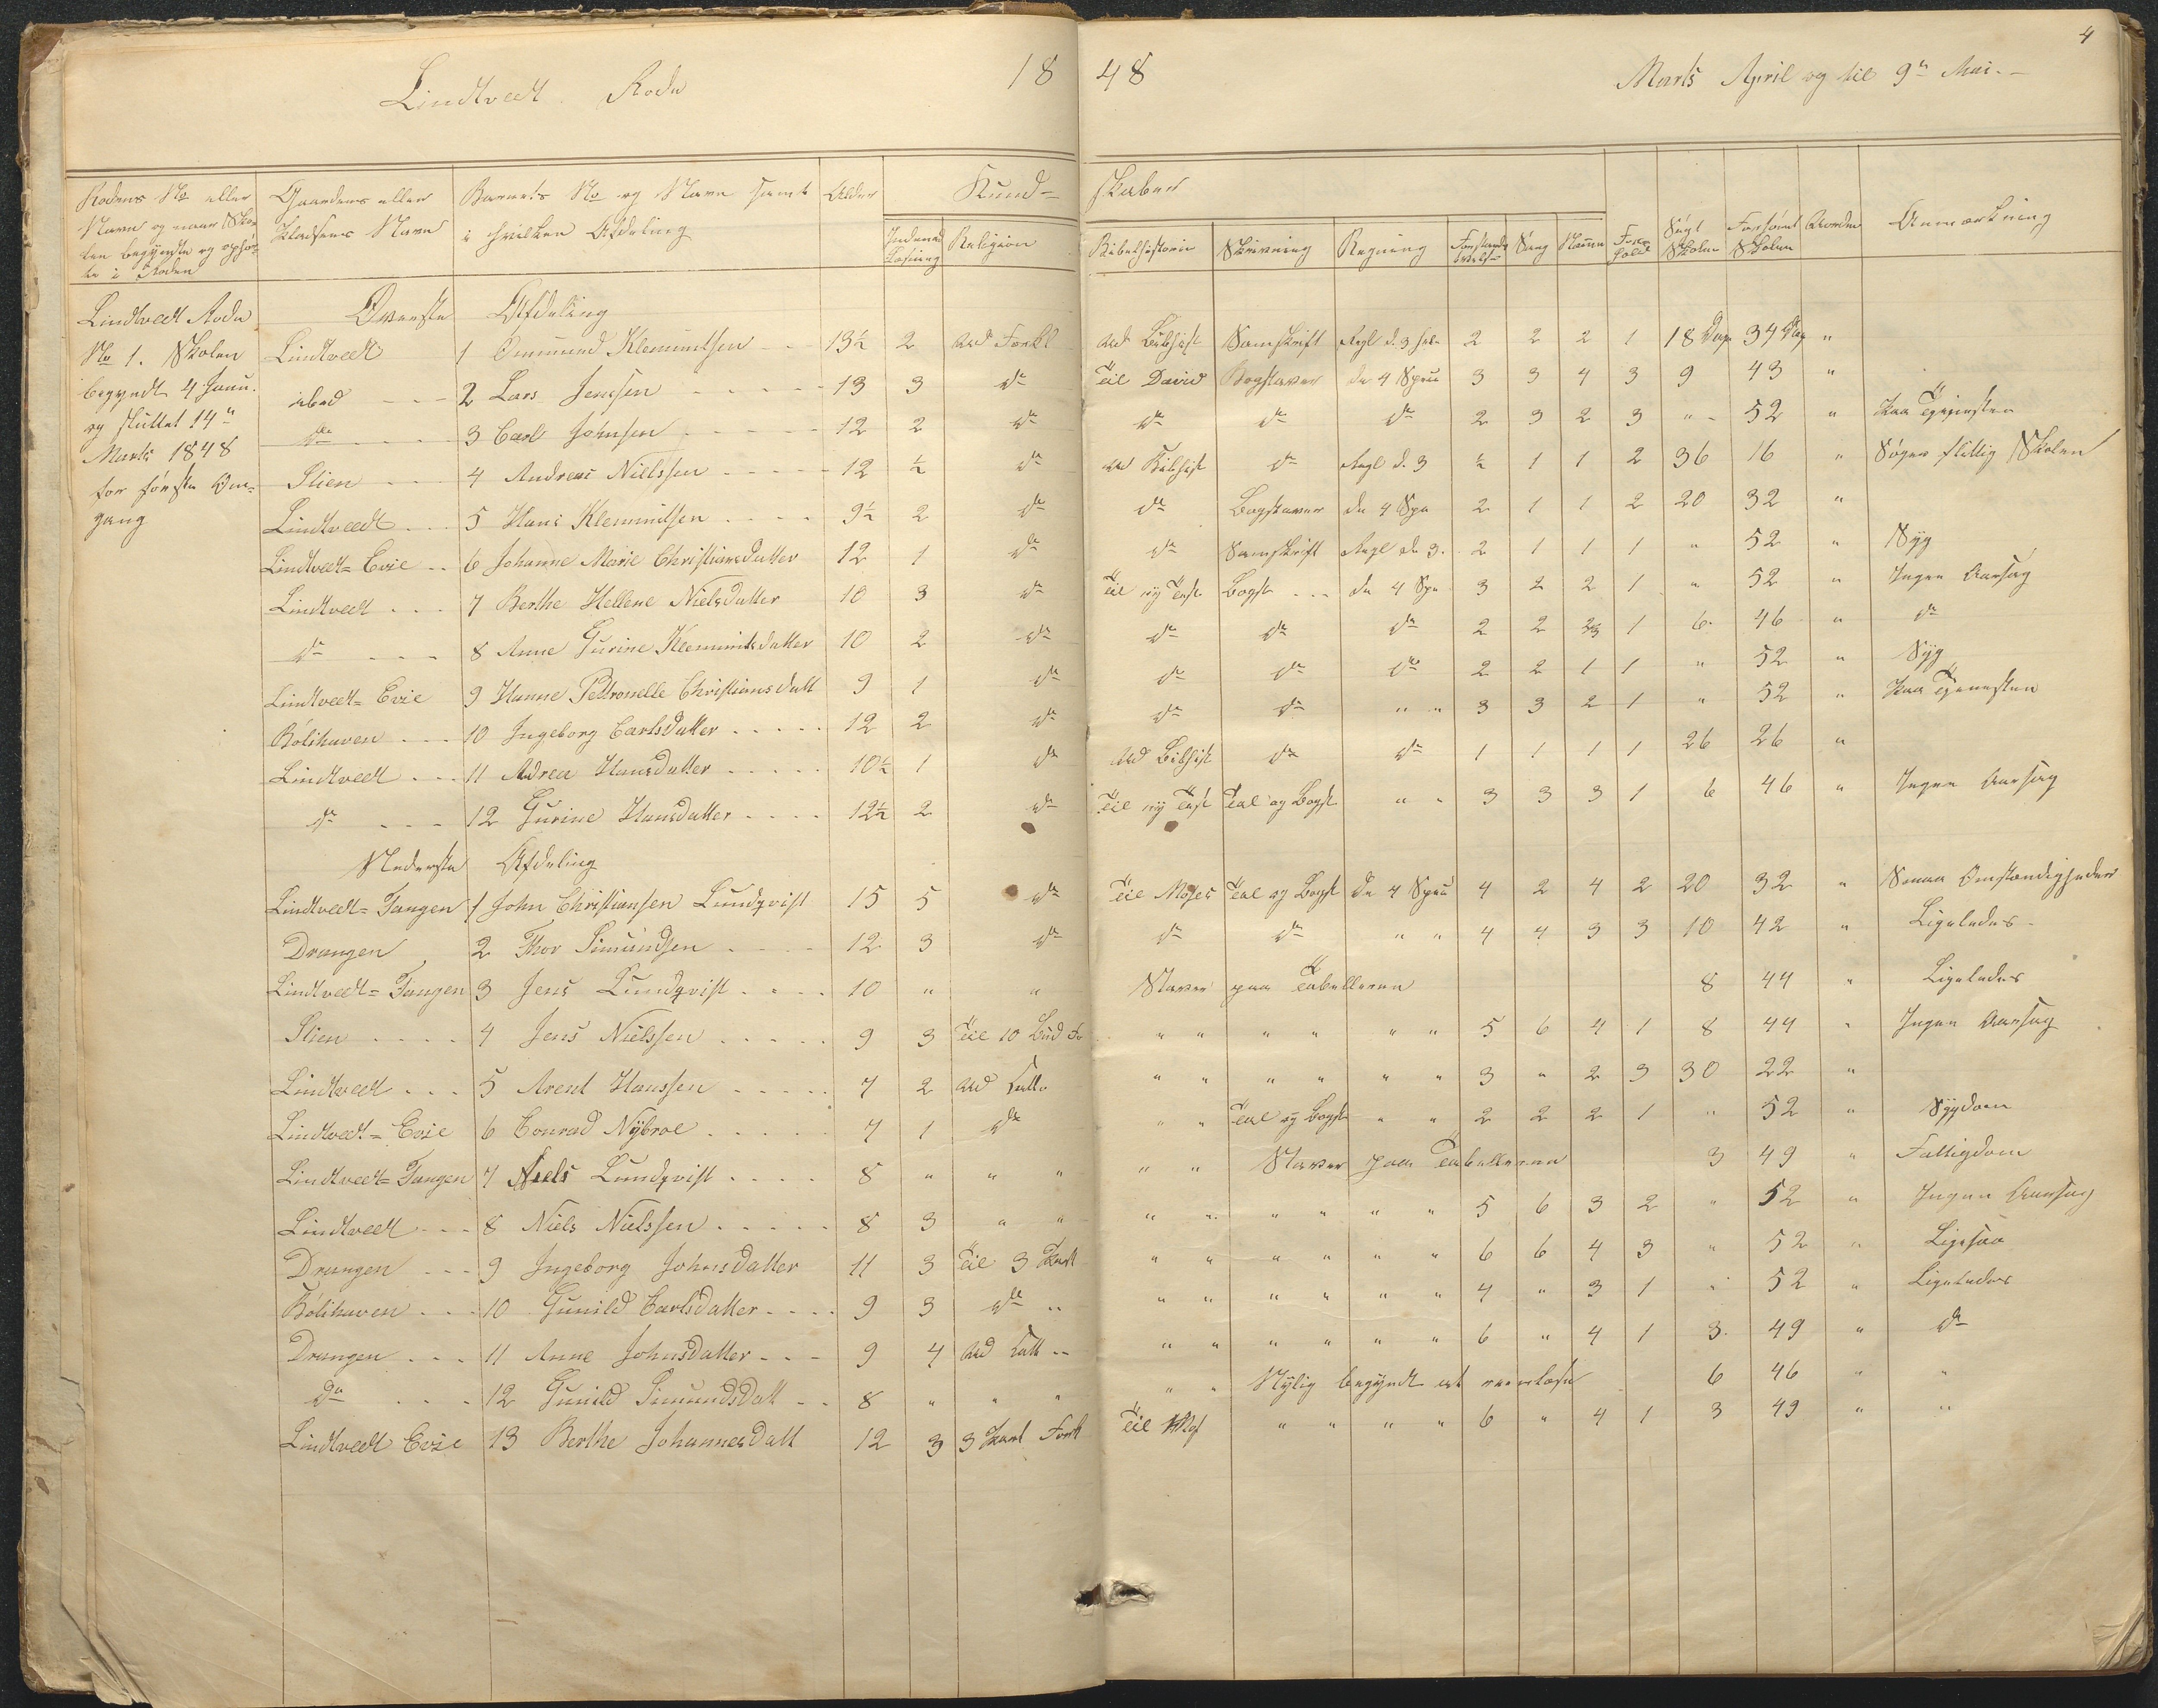 Lindtvedt Rode 18 48 Marts April og til 9de Mai. 4
Rodens No eller Navn og naar Skolen begyndte og ophørte i Roden | Gaardens eller Pladsens Navn | Barnets No og Navn samt i hvilken Afdeling | Alder | Kundskaber | Søgt Skolen | Forsømt Skolen | Anmærkning
Indenad Læsning | Religion | Bibelhistorie | Skrivning | Regning | Forstands Øvelse | Sang | Forhold
Lindtvedt Rode No 1. Skolen begyndt 4 Janu. og sluttet 14de Marts 1848 for første Omgang
Øverste Afdeling
Lindtvedt 1 Ommund Klemmetsen 13½ 2 ud Forkl ud Bibhist Samskrift Regl d. 3 2 2 2 1 18 Dage 34 Dag "
ibid 2 Lars Jenssen 13 3 do Til David Bogstaver de 4 Spec 3 3 4 3 9 43 "
do 3 Carl Johnsen 12 2 do do do do 2 3 2 3 " 52 " Paa Tjenesten
Stien 4 Andreas Nielssen 12 ½ do ud Bibhist do Regl d. 3 ½ 1 1 2 36 16 " Søger flittig Skolen
Lindtvedt 5 Hans Klemmitsen 9½ 2 do do Bogstaver de 4 Spe 2 1 1 2 20 32 "
Lindtvedt= Evie 6 Johanne Marie Christiansdatter 12 1 do do Samskrift Regl de 3. 2 1 1 1 " 52 " Syg
Lindtvedt 7 Berthe Hellene Nielsdatter 10 3 do Til ny Test Bogst de 4 Spe 3 2 2 1 " 52 " Ingen Aarsag
do 8 Anne Gurine Klemmitsdatter 10 2 do do do do 2 2 1 6 46 " do
Lindtvedt= Evie 9 Hanne Pettronelle Christiansdatt 9 1 do do do do 2 2 1 1 " 52 " Syg
Bölihaven 10 Ingeborg Carlsdatter 12 2 do do do " " 3 3 2 1 " 52 " Paa Tjenesten
Lindtvedt 11 Adrea Hansdatter 10½ 1 do ud Bibhist do do 1 1 1 1 26 26 "
do 12 Gurine Hansdatter 12½ 2 do Til ny Test Tal og Bogst " " 3 3 3 1 6 46 " Ingen Aarsag
Nederste Afdeling
Lindtvedt= Tangen 1 John Christiansen Lundqvist 15 5 do Til Moses Tal og Bogst de 4 Spec 4 2 4 2 20 32 " Smaa Omstændigheder
Drangen 2 Thor Simundsen 12 3 do do do " " 4 4 3 3 10 42 " Ligeledes
Lindtvedt= Tangen 3 Jens Lundqvist 10 " " Staver paa Tabellerne 8 44 " Ligeledes
Stien 4 Jens Nielssen 9 3 Til 10 Bud " " " " " " 5 6 4 1 8 44 " Ingen Aarsag
Lindtvedt 5 Arent Hanssen 7 2 " " " " " " 3 " 2 3 30 22 "
Lindtvedt= Evie 6 Conrad Nybroe 7 1 do " " Tal og Bogst " " 2 2 2 1 " 52 " Sygdom
Lindtvedt= Tangen 7 Niels Lundqvist 8 " " " " " Staver paa Tabellerne 3 49 " Fattigdom
Lindtvedt 8 Niels Nielssen 8 3 " " " " " " " " 5 6 3 2 " 52 " Ingen Aarsag
Drangen 9 Ingeborg Johnsdatter 11 3 Til 3 Part " " " " " " 6 6 4 3 " 52 " Ligesaa
Bölihaven 10 Gunild Carlsdatter 9 3 do " " " " " " " 4 " 3 1 " 52 " Ligeledes
Drangen 11 Anne Johnsdatter 9 4 " " " " " " 6 " 4 1 3 49 " do
do 12 Gunild Simundsdatt 8 " " " " " Nylig begyndt at 6 46 " "
Lindtvedt Evie 13 Berthe Johannesdatt 12 3 3 Part Fork Til Mos " " " " 6 " 4 1 3 49 " "